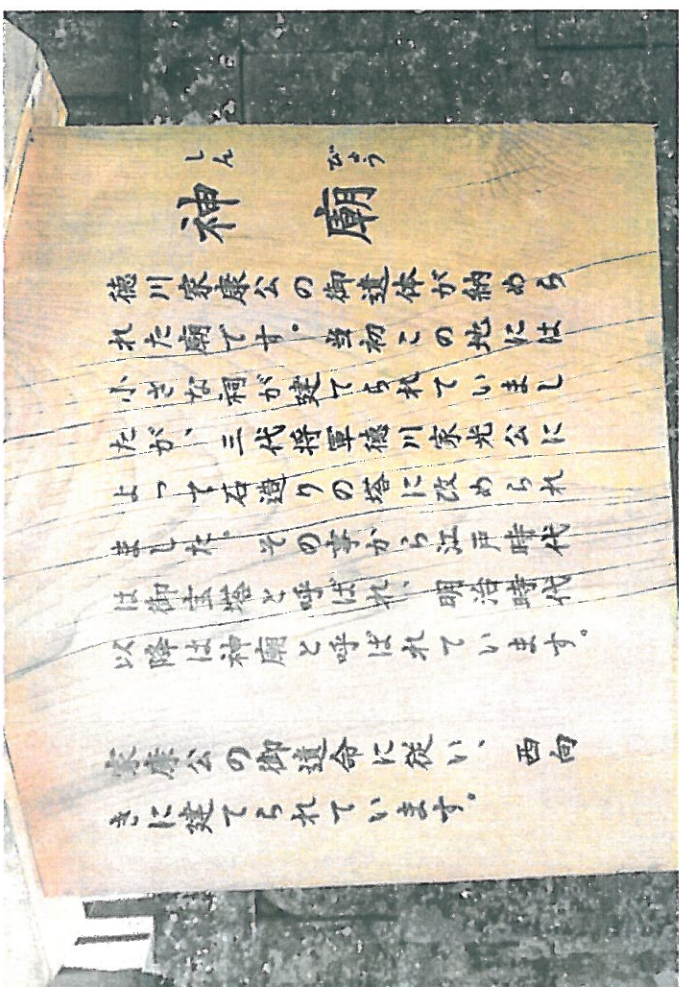 しん びょう
神廟
徳川家康公の御遺体が納めら
れた廟です。当初この地には
小さな祠が建てられていまし
たが、三代将軍徳川家光公に
よって石造りの塔に改められ
ました。その事から江戸時代
は御宝塔と呼ばれ、明治時代
以降は神廟と呼ばれています。
家康公の御遺命に従い、西向
きに建てられています。